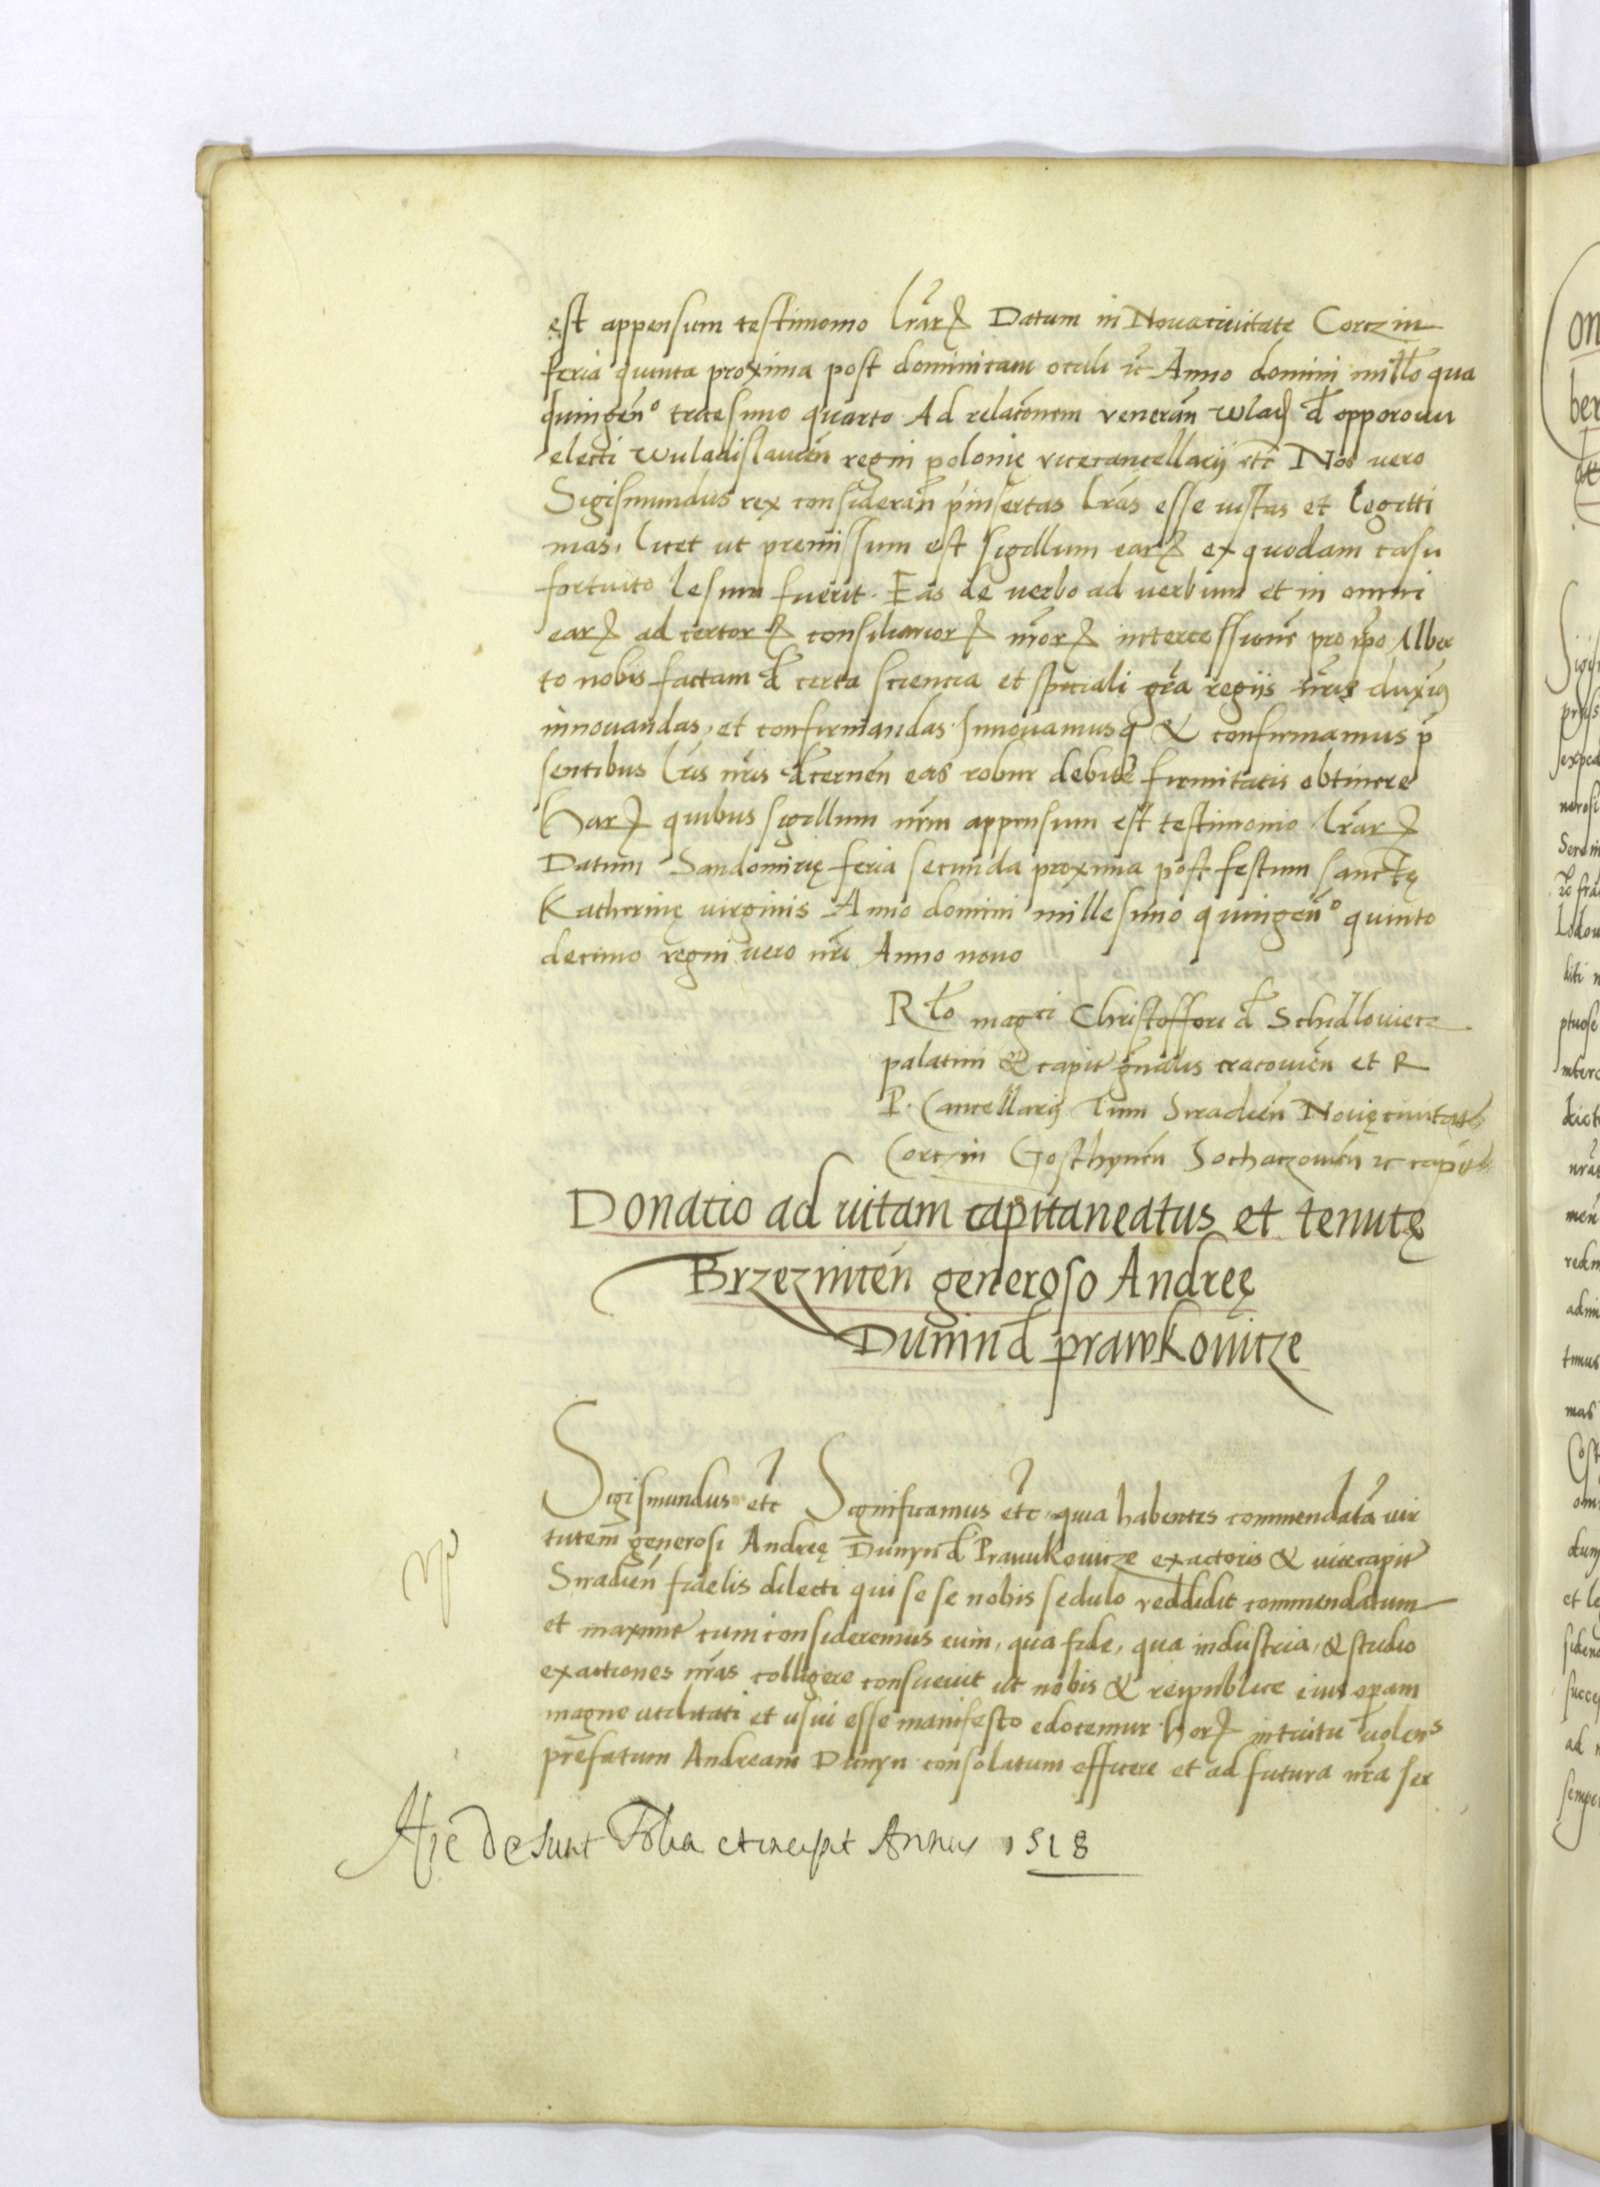 est appensum testimonio l̄rarꝝ Datum in Nouaciuitate Corczin
feria quinta proxima post dominicam oculi ꝛc Anno domini millo qua
dringen̄º tricesimo quarto Ad relacōnem venerān Wlad d̄ opporow
electi Wuladislauien̄ regni polonię vicecancellarij etc̄ Nos vero
Sigismundus rex considerān p̄insertas l̄ras esse iustas et legitti
mas, licet ut premissum est sigillum earꝝ ex quodam casu
fortuito lesum fuerit. Eas de verbo ad verbum et in omni
earꝝ ad certorꝝ consiliariorꝝ n̄rorꝝ intercessionē pro ip̄o Alber
to nobis factam d̄ certa sciencia et speciali gr̄a regiis n̄ris duxim9
innouandas, et confirmandas. Innouamusqꝫ & confirmamus p̄
sentibus l̄ris n̄ris d̄cernen̄ eas robur debitę firmitatis obtinere
Harꝝ quibus sigillum n̄rm appensum est testimonio l̄rarꝝ
Datum Sandomirię feria secunda proxima post festum sanctę
Katherinę virginis Anno domini millesimo quingen̄º quinto
decimo regni vero n̄ri Anno nono
R̄lo mag^ci Christoffori d̄ Schidlowiecz
palatini & capit gn̄alis cracouien̄ et R
P. Cancellarij Tum Siradien̄ Nouęciuitatis
Corczin Gosthynen̄ Sochaczouien̄ ꝛc capit
Donatio ad uitam capitaneatus et tenutę
Brzeznicen̄ generoso Andreę
Dunin d̄ prawkowicze
Sigismundus etc̄ Significamus etc̄ quia habentes commendatā uir
tutem generosi Andreę Dunyn d̄ Prawkowicze exactoris & uicecapit
Siradien̄ fidelis dilecti qui se se nobis sedulo reddidit commendatum
et maxime cum consideremus eum, qua fide, qua industria, & studio
exactiones n̄ras colligere consueuit ut nobis & reipublice eius operam
magne utilitati et usui esse manifesto edocemur. horꝝ intuitu volens
prefatum Andream Dunyn consolatum efficere et ad futura n̄ra ser
Hic desunt Folia et incipit Annus 1518